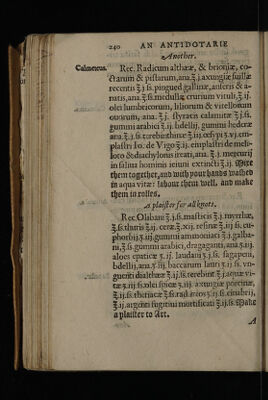 240 AN ANTIDOTARIE
Another.
Calmeteus. Rec. Radicum altheæ, & brioniæ, co-
ctarum & pistarum, ana.℥.j. axungiæ suillæ
recentis ℥.j.ß. pinguedi gallinæ, anseris & a-
natis, ana.℥.ß. medullæ crurium vituli, ℥.ij.
olei lumbricorum, liliorum & vitellorum
ovorum, ana.℥.j. styracis calamitæ ℥.j.ß.
gummi arabici ℥.ij. bdellij, gummi hederæ
ana.℥.j.ß. terebinthinæ ℥.iij. œsipi ʒ.vj. em-
plastri Io. de Vigo ℥.ij. emplastri de meli-
loto & diachylonis ireati, ana.℥.j. mercurij
in saliva hominis ieiuni extincti ℥.ij. Mixe
them together, and with your hands washed
in aqua vitæ: labour them well, and make
them in rolles.
A plaister for all knots.
Rec. Olibani ℥.j.ß. masticis ℥.j. myrrhæ,
℥.ß. thuris ℥.ij. ceræ, ℥.xij. resinæ ℥.iij ß. eu-
phorbij ʒ.iij. gummi ammoniaci ℥.j. galba-
ni, ℥.ß. gummi arabici, dragaganti, ana ℥.iij.
aloes epaticæ ʒ.ij. laudani ʒ.j.ß. sagapeni,
bdellij, ana.ʒ.iij. baccarum lauri ℥.ij ß. vn-
guenti dialtheæ ℥.ij.ß. terebint ℥.j. aquæ vi-
tæ